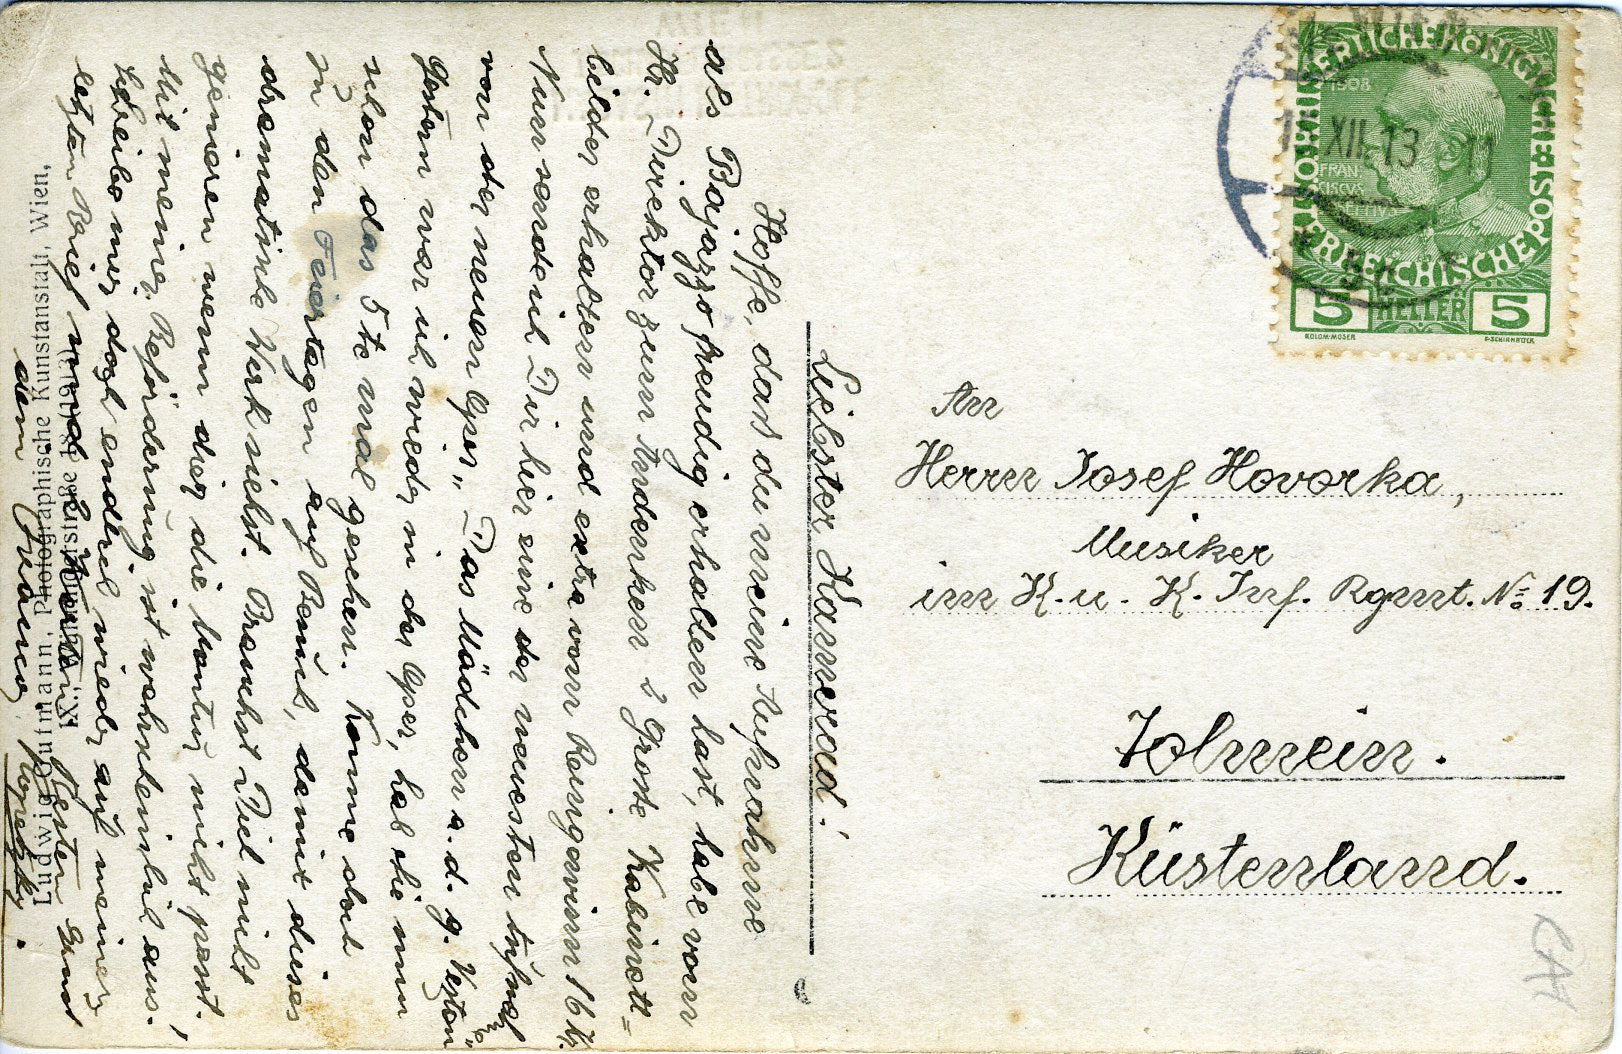 Liebster Kamerad!
Hoffe, daß du meine Aufnahme
als Bajazzo freudig erhalten hast, habe vom
Hr. Direktor zum Andenken 2 Grosse Kabinett=
bilder erhalten und extra vom Reingewinn 16 K.
Nun sende ich Dir hier eine der neuesten Aufnahme
von der neuen Oper „Das Mädchen a. d. g. Westen"
Gestern war ich wieder in der Oper, hab sie nun
schon das 5te mal gesehen. Komme doch
in den Feiertagen auf Besuch, damit du dieses
dramatische Werk siehst. Brauchst Dich nicht
genieren wenn dir die Montur nicht passt.
Mit meiner Beförderung ist wahrscheinlich aus.
Schreibe mir doch endlich wieder auf meinen
letzten Brief und Karte. Besten Gruß
dein Franco
Ludwig Gutmann, Photographische Kunstanstalt, Wien,
WIEN
XII 13 11
KAISERLICHE KÖNIGLICHE ÖSTERREICHISCHE POST
1908
FRAN
CISCVS
5 HELLER 5
KOLOM·MOSER
F·SCHIRNBÖCK
An
Herrn Josef Hovorka,
Musiker
im K. u. K. Inf. Rgmnt. No 19.
Tolmein.
Küstenland.